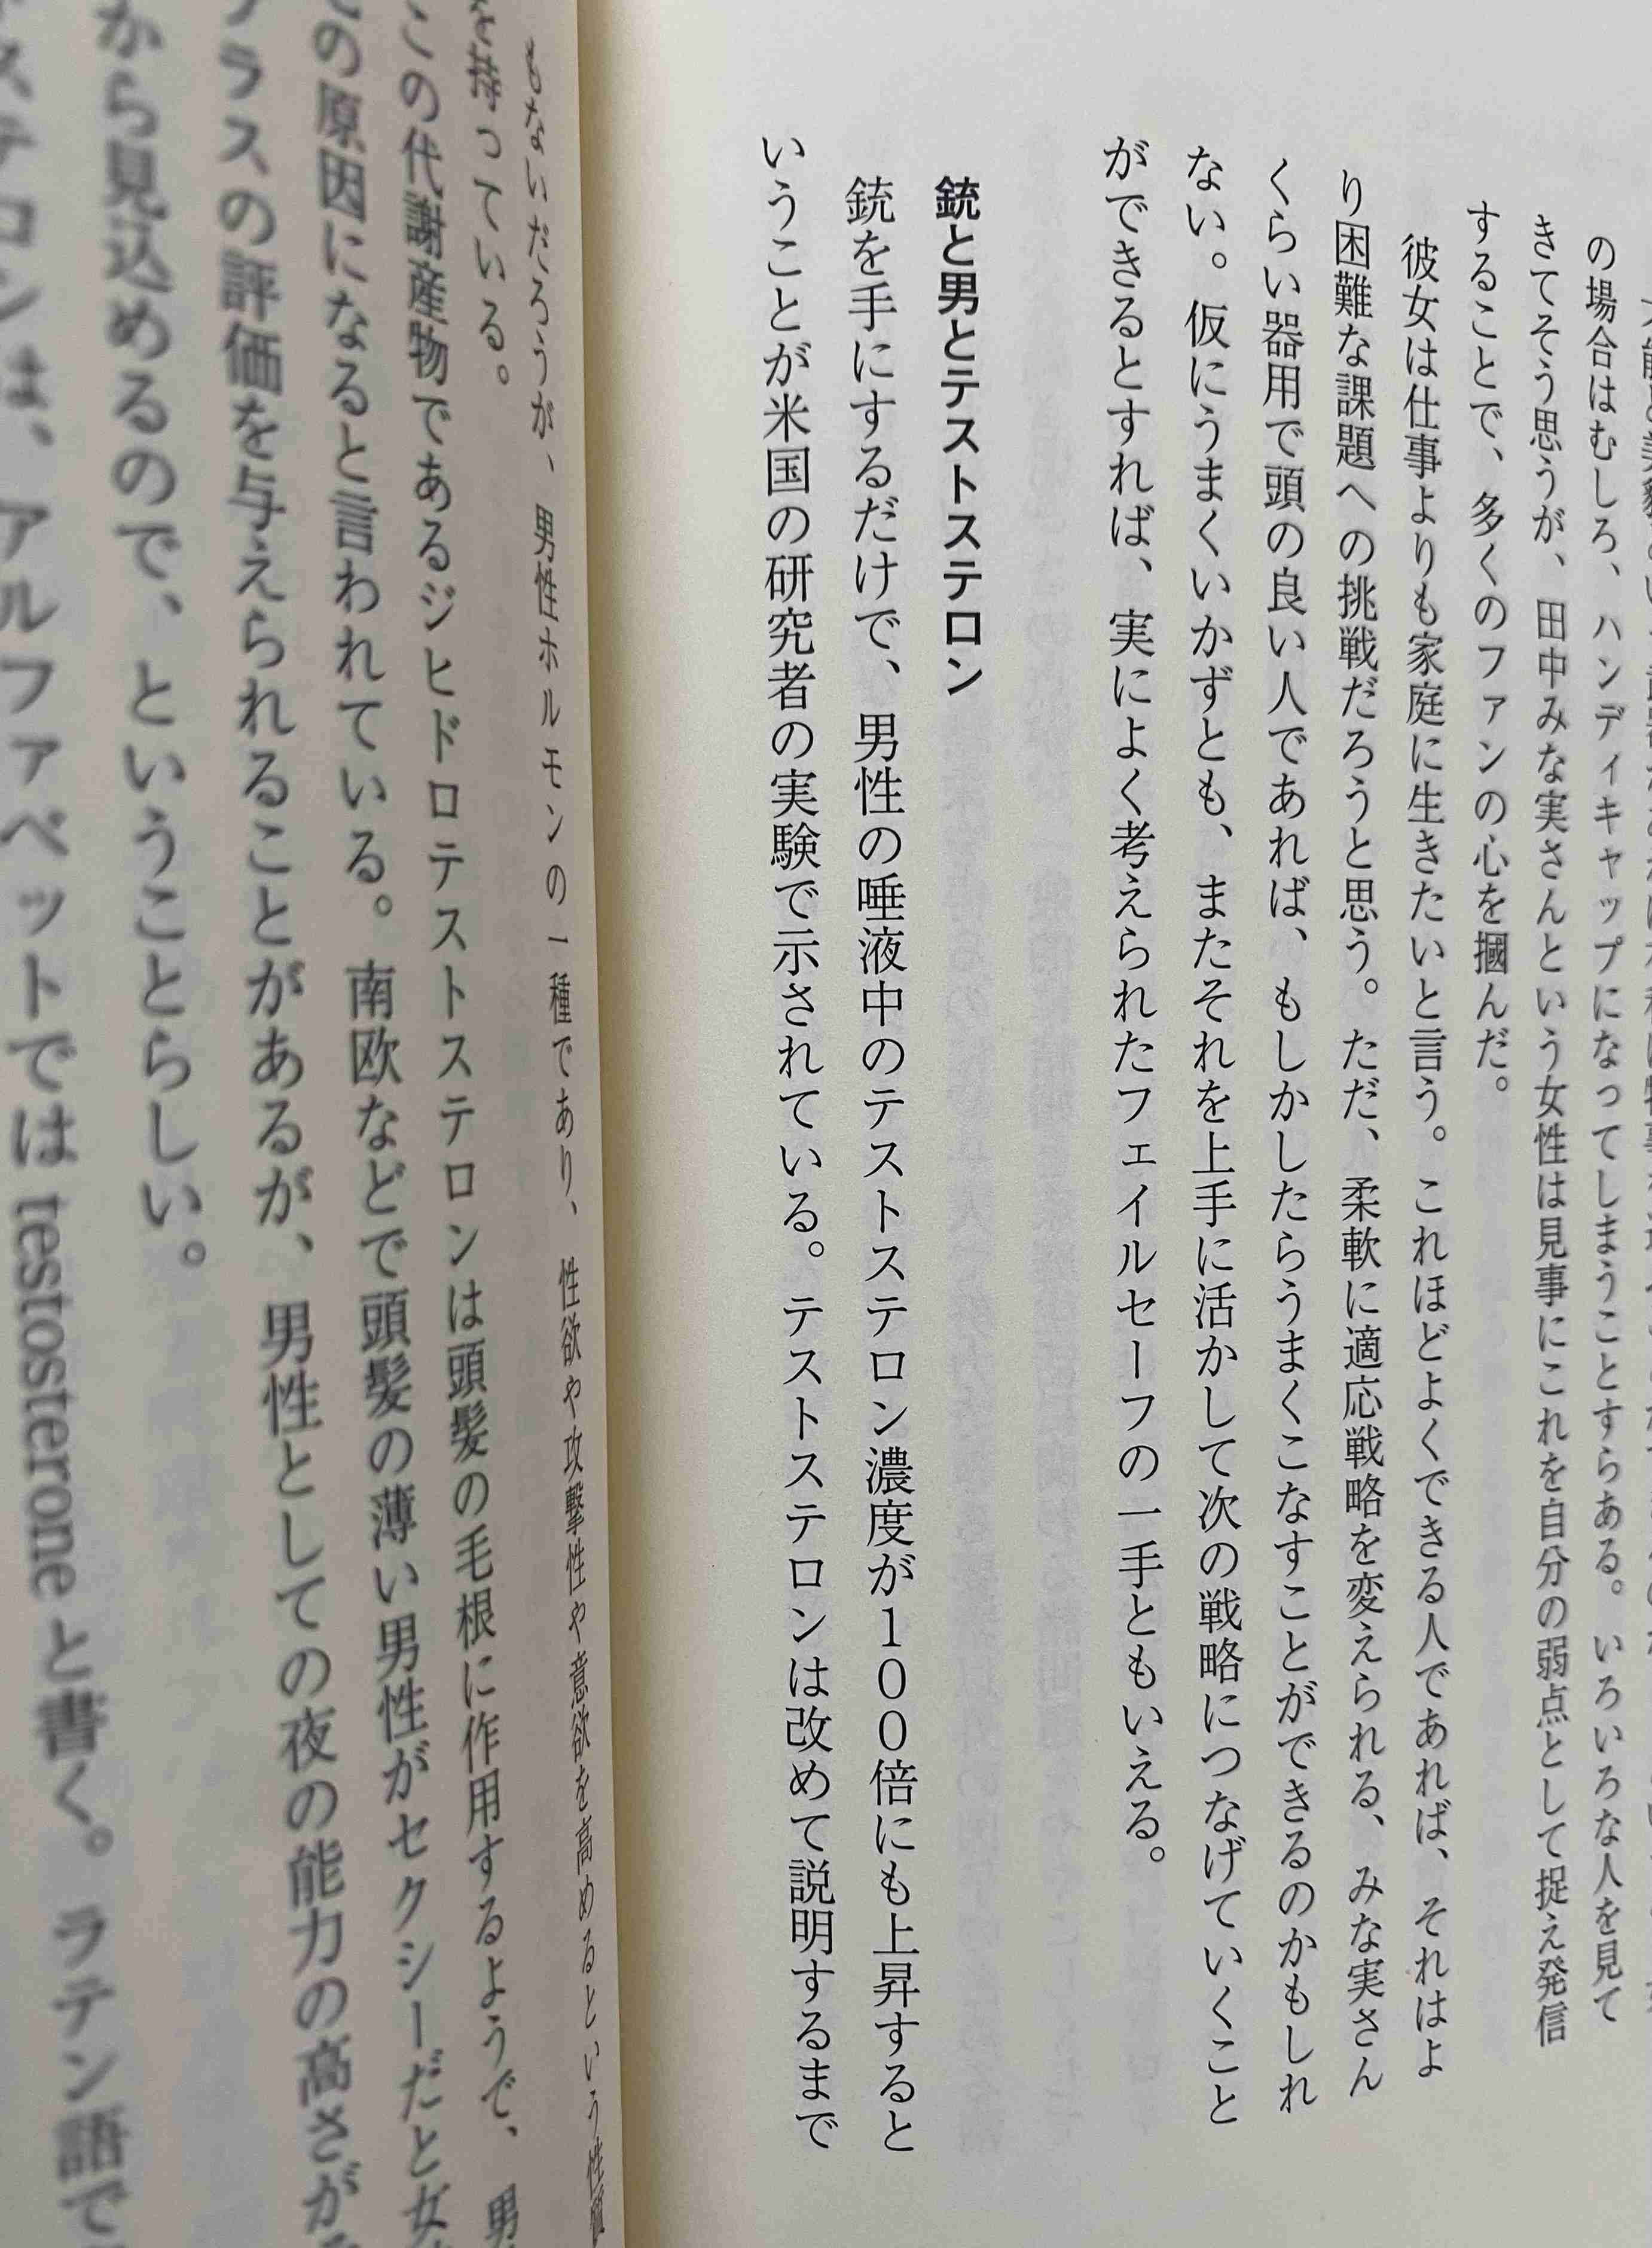 の場合はむしろ、ハンディキャップになってしまうことすらある。いろいろな人を見て
きてそう思うが、田中みな実さんという女性は見事にこれを自分の弱点として捉え発信
することで、多くのファンの心を摑んだ。
彼女は仕事よりも家庭に生きたいと言う。これほどよくできる人であれば、それはよ
り困難な課題への挑戦だろうと思う。ただ、柔軟に適応戦略を変えられる、みな実さん
くらい器用で頭の良い人であれば、もしかしたらうまくこなすことができるのかもしれ
ない。仮にうまくいかずとも、またそれを上手に活かして次の戦略につなげていくこと
ができるとすれば、実によく考えられたフェイルセーフの一手ともいえる。
銃と男とテストステロン
銃を手にするだけで、男性の唾液中のテストステロン濃度が100倍にも上昇すると
いうことが米国の研究者の実験で示されている。テストステロンは改めて説明するまで
もないだろうが、男性ホルモンの一種であり、性欲や攻撃性や意欲を高めるという性質
を持っている。
この代謝産物であるジヒドロテストステロンは頭髪の毛根に作用するようで、男
の原因になると言われている。南欧などで頭髪の薄い男性がセクシーだと女
プラスの評価を与えられることがあるが、男性としての夜の能力の高さが
から見込めるので、ということらしい。
ステロンは、アルファベットでは testosterone と書く。ラテン語で